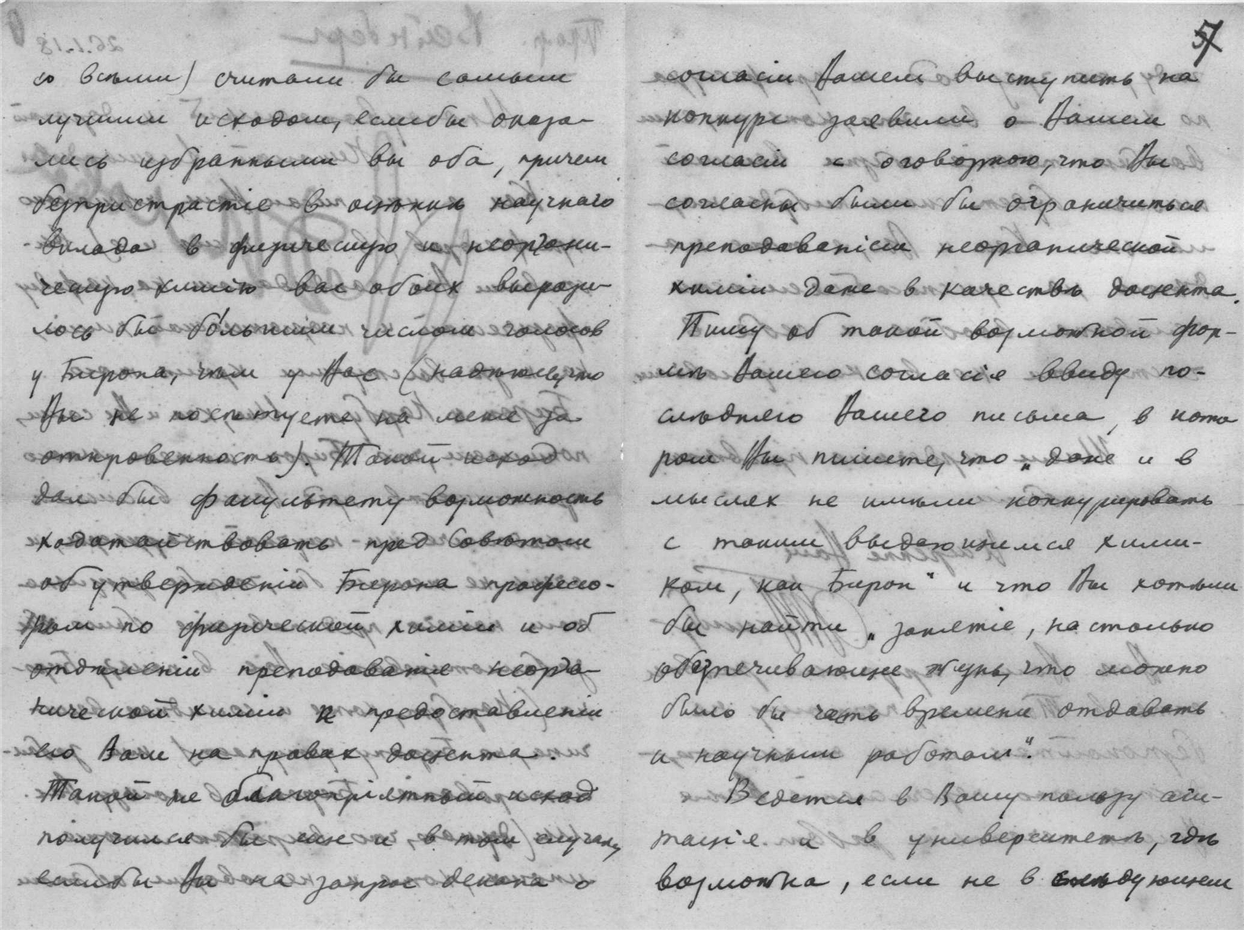 со всѣми) считали бы самым
лучшим исходом, еслибы оказа-
лись избранными вы оба, причем
безпристрастіе в оцѣнкѣ научнаго
вклада в физическую и неоргани-
ческую химію вас обоих вырази-
лось бы бо́льшим числом голосов
у Бирона, чѣм у Вас (надѣюсь, что
Вы не посѣтуете на меня за
откровенность). Такой исход
дал бы факультету возможность
ходатайствовать пред Совѣтом
об утвержденіи Бирона профессо-
ром по физической химіи и об
отдѣленіи преподаванія неорга-
нической химіи и предоставленіи
его Вам на правах доцента.
Такой же благопріятный исход
получился бы и в том случаѣ,
еслибы Вы на запрос декана о
57
согласіи Вашем выступить на
конкурс заявили о Вашем
согласіи с оговоркою, что Вы
согласны были бы ограничиться
преподаваніем неорганической
химіи даже в качествѣ доцента.
Пишу об такой возможной фор-
мѣ Вашего согласія ввиду по-
слѣдняго Вашего письма, в кото
ром Вы пишете, что „даже и в
мыслях не имѣли конкурировать
с таким выдающимся хими-
ком, как Бирон" и что Вы хотѣли
бы найти „занятіе, настолько
обезпечивающее жизнь, что можно
было бы часть времени отдавать
и научным работам".
Ведется в Вашу пользу аги-
тація и в университетѣ, гдѣ
возможна, если не в слѣдующем